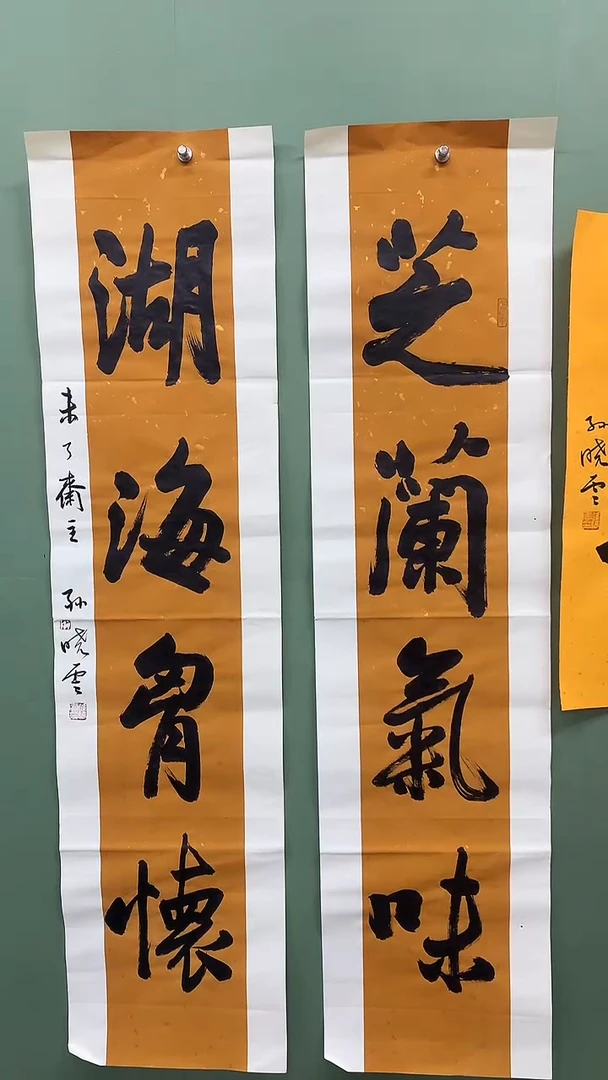 芝蘭氣味
湖海胷懷
未了齋主 孙晓雲
孙晓雲